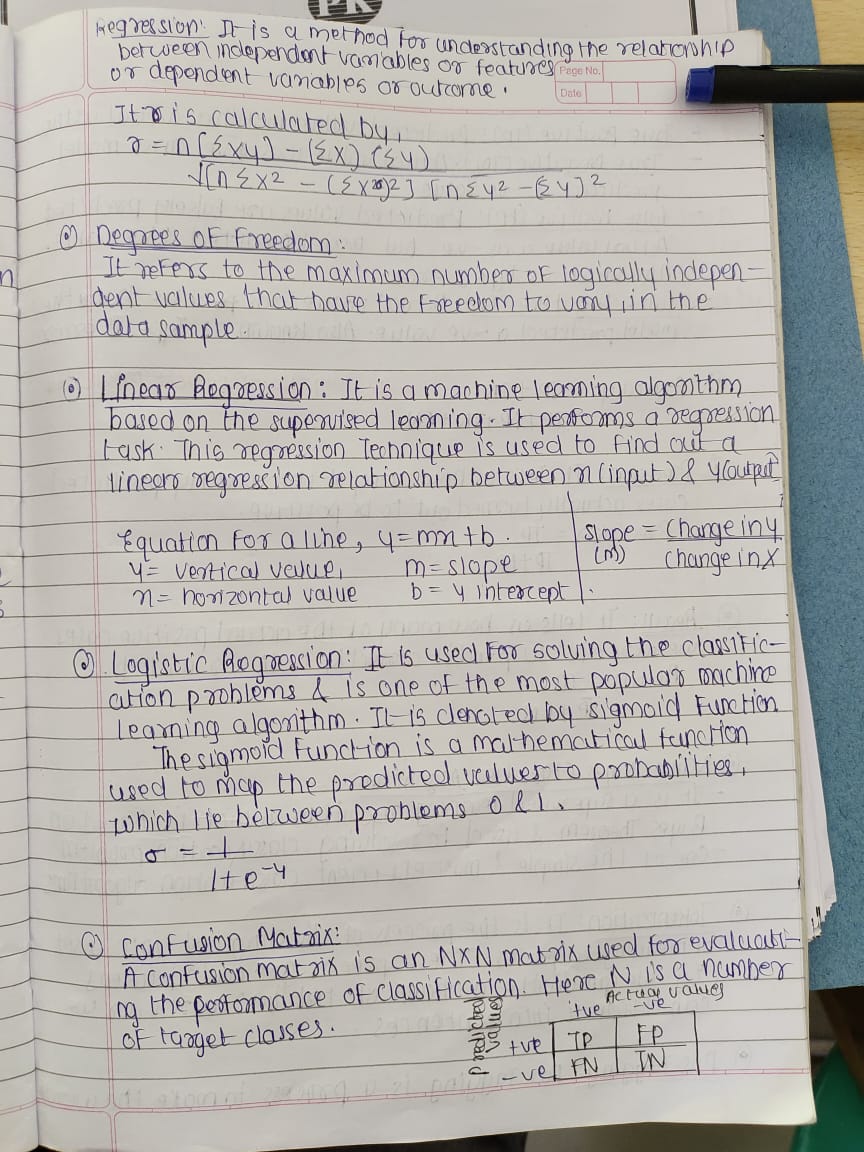 PK
Regression: It is a method for understanding the relationship
between independent variables or features
or dependent variables or outcome.
Page No.
Date
It r is calculated by,
r = n(Σxy) - (Σx) (Σy)
√[nΣx2 - (Σx)2] [nΣy2 - (Σy]2
Degrees of Freedom:
It refers to the maximum number of logically indepen-
dent values, that have the freedom to vary, in the
data sample.
Linear Regression: It is a machine learning algorithm
based on the supervised learning. It performs a regression
task. This regression Technique is used to find out a
linear regression relationship between x (input) & y(output)
Equation for a line, y=mx+b.
y= vertical value, m=slope
x= horizontal value b= y intercept
slope = change in y
(m) change in x
Logistic Regression: It is used for solving the classific-
ation problems & is one of the most popular machine
learning algorithm. It is denoted by sigmoid Function
The sigmoid Function is a mathematical function
used to map the predicted values to probabilities,
which lie between problems 0 & 1.
σ = 1
1+e-y
Confusion Matrix:
A confusion matrix is an NxN matrix used for evaluati-
ng the performance of classification. Here N is a number
of target classes.
Actual values
+ve -ve
predicted values
+ve TP FP
-ve FN TN